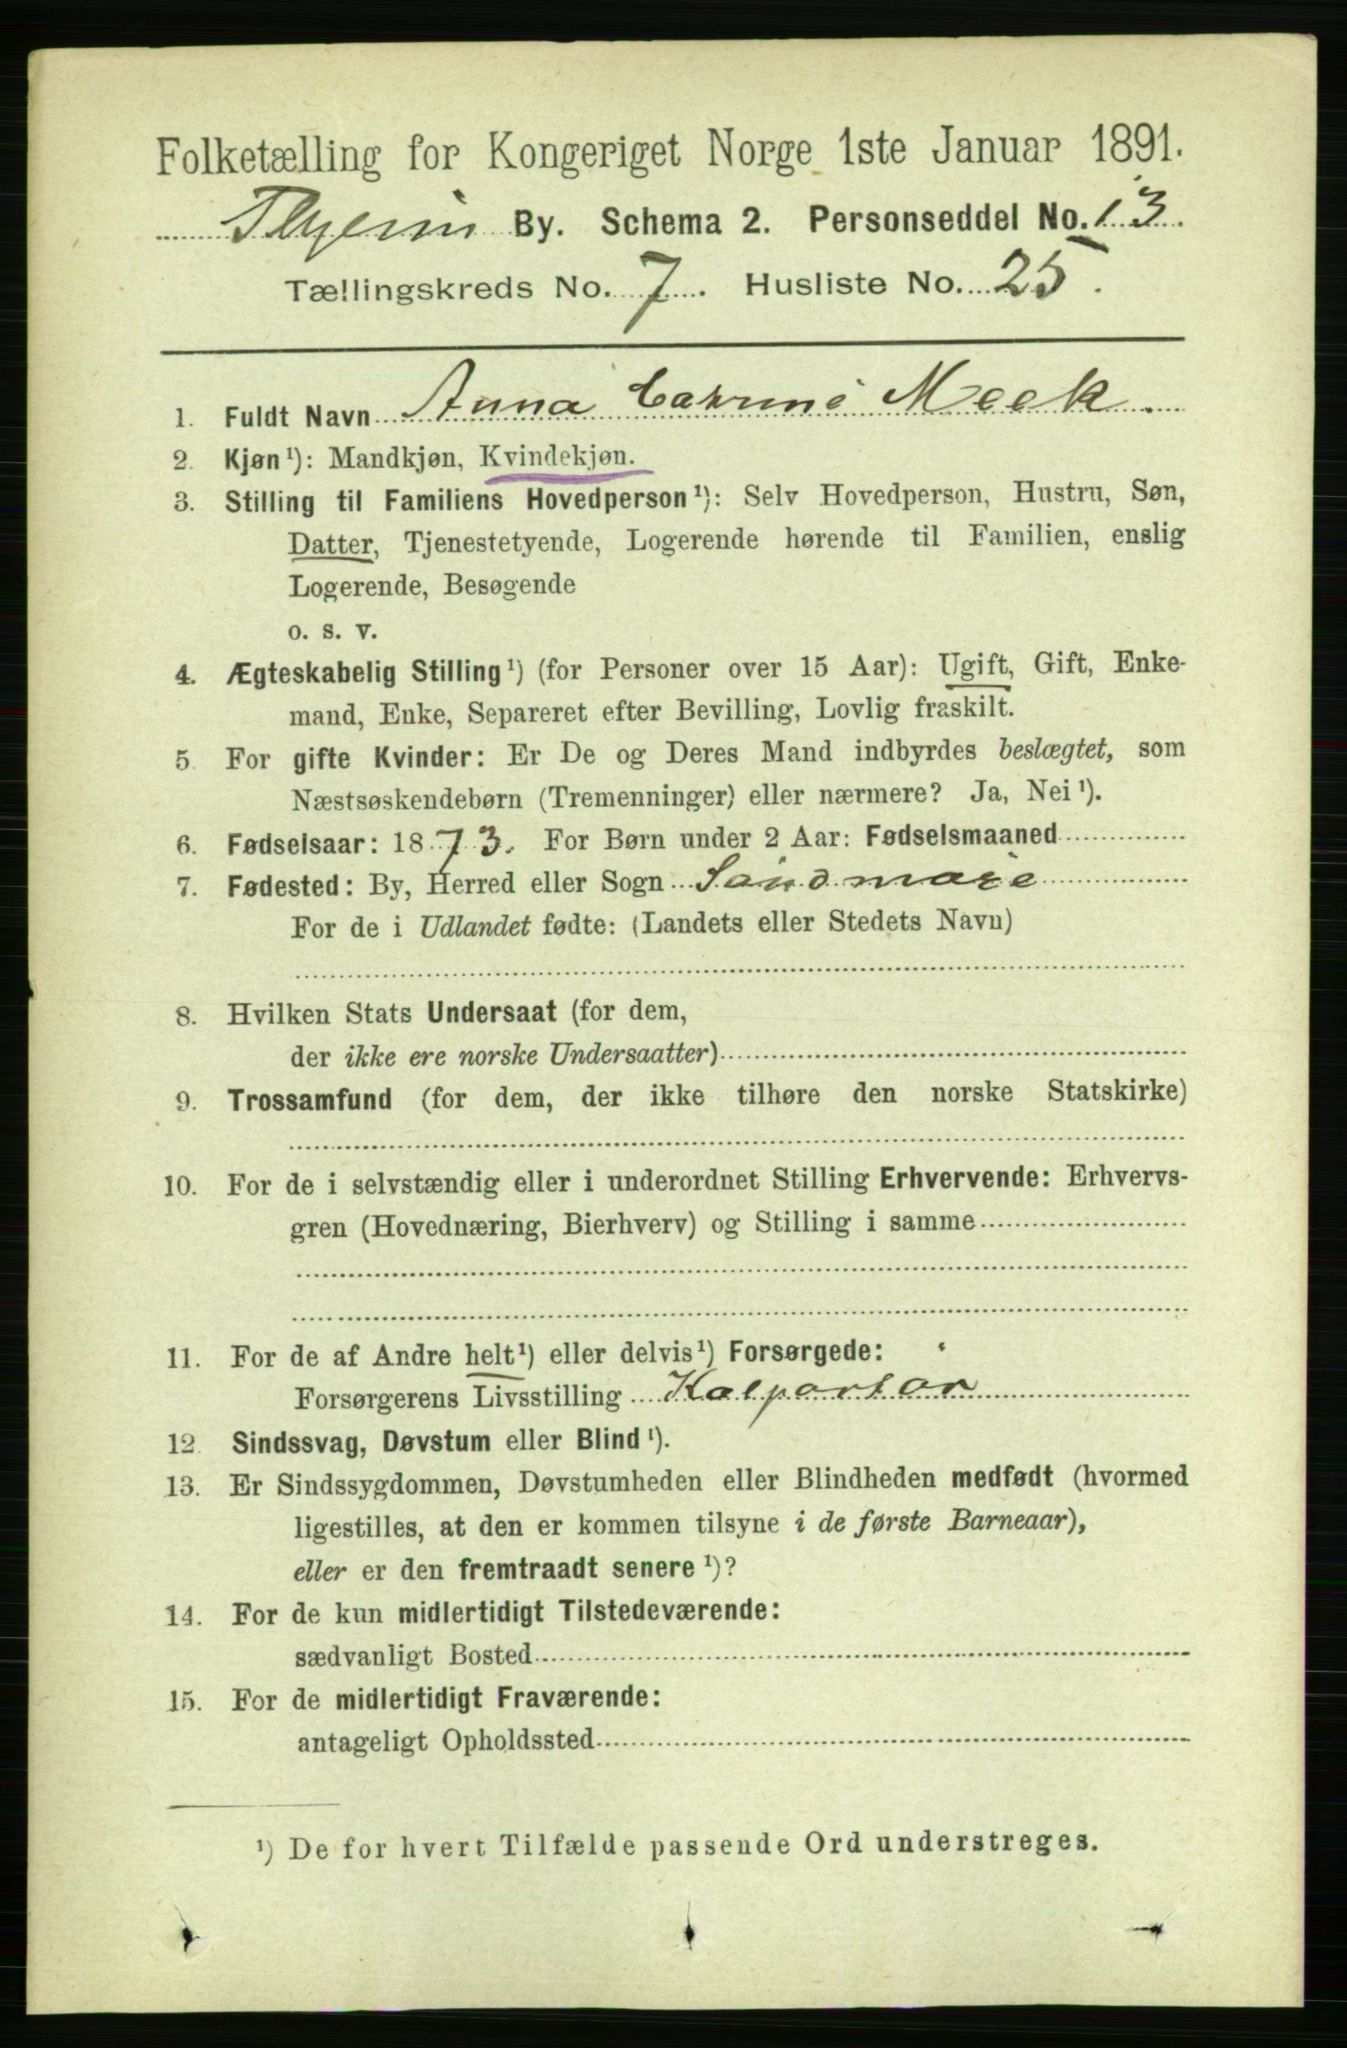 Folketælling for Kongeriget Norge 1ste Januar 1891.
By. Schema 2. Personseddel No. 13.
Tællingskreds No. 7. Husliste No. 25.
1. Fuldt Navn Anna Catrine Meek.
2. Kjøn ¹): Mandkjøn, Kvindekjøn.
3. Stilling til Familiens Hovedperson ¹): Selv Hovedperson, Hustru, Søn,
Datter, Tjenestetyende, Logerende hørende til Familien, enslig
Logerende, Besøgende
o. s. v.
4. Ægteskabelig Stilling ¹) (for Personer over 15 Aar): Ugift, Gift, Enke-
mand, Enke, Separeret efter Bevilling, Lovlig fraskilt.
5. For gifte Kvinder: Er De og Deres Mand indbyrdes beslægtet, som
Næstsøskendebørn (Tremenninger) eller nærmere? Ja, Nei ¹).
6. Fødselsaar: 1873. For Børn under 2 Aar: Fødselsmaaned
7. Fødested: By, Herred eller Sogn
For de i Udlandet fødte: (Landets eller Stedets Navn)
8. Hvilken Stats Undersaat (for dem,
der ikke ere norske Undersaatter)
9. Trossamfund (for dem, der ikke tilhøre den norske Statskirke)
10. For de i selvstændig eller i underordnet Stilling Erhvervende: Erhvervs-
gren (Hovednæring, Bierhverv) og Stilling i samme
11. For de af Andre helt ¹) eller delvis ¹) Forsørgede:
Forsørgerens Livsstilling Kolportør
12. Sindssvag, Døvstum eller Blind ¹).
13. Er Sindssygdommen, Døvstumheden eller Blindheden medfødt (hvormed
ligestilles, at den er kommen tilsyne i de første Barneaar),
eller er den fremtraadt senere ¹)?
14. For de kun midlertidigt Tilstedeværende:
sædvanligt Bosted
15. For de midlertidigt Fraværende:
antageligt Opholdssted
¹) De for hvert Tilfælde passende Ord understreges.